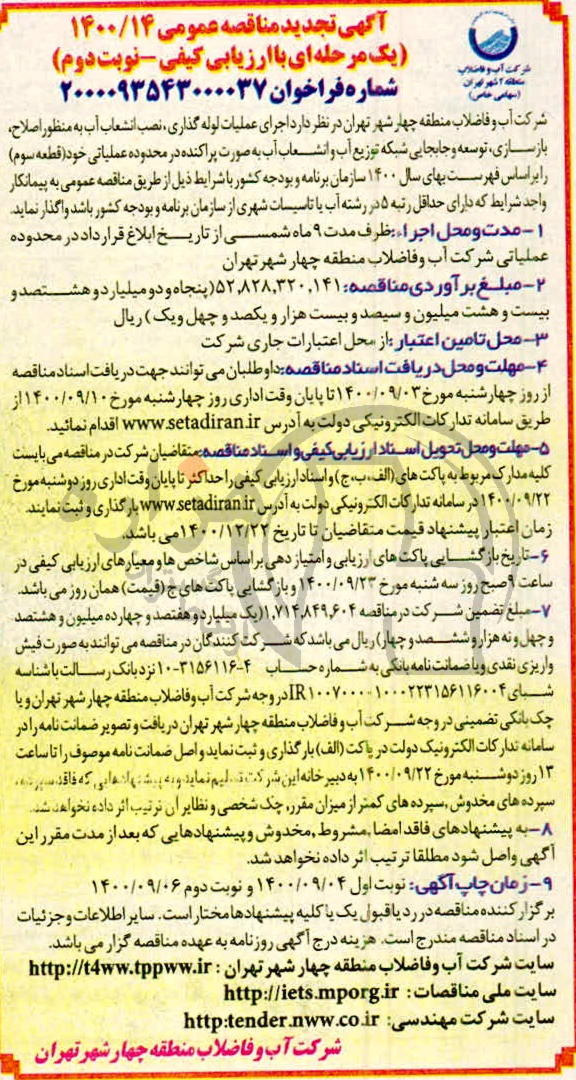 آگهی تجدید مناقصه عمومی ۱۴۰۰/۱۴
(یک مرحله‌ای با ارزیابی کیفی - نوبت دوم)
شماره فراخوان ۲۰۰۰۰۹۳۵۴۳۰۰۰۰۳۷
شرکت آب و فاضلاب
منطقه ۴ شهر تهران
(سهامی خاص)
شرکت آب و فاضلاب منطقه چهار شهر تهران در نظر دارد اجرای عملیات لوله گذاری ، نصب انشعاب آب به منظور اصلاح،
بازسازی، توسعه و جابجایی شبکه توزیع آب و انشعاب آب به صورت پراکنده در محدوده عملیاتی خود (قطعه سوم)
را بر اساس فهرست بهای سال ۱۴۰۰ سازمان برنامه و بودجه کشور با شرایط ذیل از طریق مناقصه عمومی به پیمانکار
واجد شرایط که دارای حداقل رتبه ۵ در رشته آب یا تاسیسات شهری از سازمان برنامه و بودجه کشور باشد واگذار نماید.
۱- مدت و محل اجراء: ظرف مدت ۹ ماه شمسی از تاریخ ابلاغ قرارداد در محدوده
عملیاتی شرکت آب و فاضلاب منطقه چهار شهر تهران
۲- مبلغ برآوردی مناقصه: ۵۲,۸۲۸,۳۲۰,۱۴۱ (پنجاه و دو میلیارد و هشتصد و
بیست و هشت میلیون و سیصد و بیست هزار و یکصد و چهل و یک) ریال
۳- محل تامین اعتبار: از محل اعتبارات جاری شرکت
۴- مهلت و محل دریافت اسناد مناقصه: داوطلبان می توانند جهت دریافت اسناد مناقصه
از روز چهارشنبه مورخ ۱۴۰۰/۰۹/۰۳ تا پایان وقت اداری روز چهارشنبه مورخ ۱۴۰۰/۰۹/۱۰ از
طریق سامانه تدارکات الکترونیکی دولت به آدرس www.setadiran.ir اقدام نمائید.
۵- مهلت و محل تحویل اسناد ارزیابی کیفی و اسناد مناقصه: متقاضیان شرکت در مناقصه می بایست
کلیه مدارک مربوط به پاکت های (الف، ب، ج) و اسناد ارزیابی کیفی را حداکثر تا پایان وقت اداری روز دوشنبه مورخ
۱۴۰۰/۰۹/۲۲ در سامانه تدارکات الکترونیکی دولت به آدرس www.setadiran.ir بارگذاری و ثبت نمایند.
زمان اعتبار پیشنهاد قیمت متقاضیان تا تاریخ ۱۴۰۰/۱۲/۲۲ می باشد.
۶- تاریخ بازگشایی پاکت های ارزیابی و امتیاز دهی بر اساس شاخص ها و معیارهای ارزیابی کیفی در
ساعت ۹ صبح روز سه شنبه مورخ ۱۴۰۰/۰۹/۲۳ و بازگشایی پاکت های ج (قیمت) همان روز می باشد.
۷- مبلغ تضمین شرکت در مناقصه ۱,۷۱۴,۸۴۹,۶۰۴ (یک میلیارد و هفتصد و چهارده میلیون و هشتصد
و چهل و نه هزار و ششصد و چهار) ریال می باشد که شرکت کنندگان در مناقصه می توانند به صورت فیش
واریزی نقدی و یا ضمانت نامه بانکی به شماره حساب ۴-۳۱۵۶۱۱۶-۱۰ نزد بانک رسالت با شناسه
شبای IR۱۰۰۷۰۰۰۰۱۰۰۰۲۲۳۱۵۶۱۱۶۰۰۴ در وجه شرکت آب و فاضلاب منطقه چهار شهر تهران و یا
چک بانکی تضمینی در وجه شرکت آب و فاضلاب منطقه چهار شهر تهران دریافت و تصویر ضمانت نامه را در
سامانه تدارکات الکترونیک دولت در پاکت (الف) بارگذاری و ثبت نماید و اصل ضمانت نامه موصوف را تا ساعت
۱۳ روز دوشنبه مورخ ۱۴۰۰/۰۹/۲۲ به دبیرخانه این شرکت تسلیم نماید و به پیشنهادهایی که فاقد سپرده،
سپرده های مخدوش، سپرده های کمتر از میزان مقرر، چک شخصی و نظایر آن ترتیب اثر داده نخواهد شد.
۸- به پیشنهادهای فاقد امضا، مشروط، مخدوش و پیشنهادهایی که بعد از مدت مقرر این
آگهی واصل شود مطلقا ترتیب اثر داده نخواهد شد.
۹- زمان چاپ آگهی: نوبت اول ۱۴۰۰/۰۹/۰۴ و نوبت دوم ۱۴۰۰/۰۹/۰۶
برگزار کننده مناقصه در رد یا قبول یک یا کلیه پیشنهادها مختار است. سایر اطلاعات و جزئیات
در اسناد مناقصه مندرج است. هزینه درج آگهی روزنامه به عهده مناقصه گزار می باشد.
سایت شرکت آب و فاضلاب منطقه چهار شهر تهران : http://t4ww.tppww.ir
سایت ملی مناقصات: http://iets.mporg.ir
سایت شرکت مهندسی: http:tender.nww.co.ir
شرکت آب و فاضلاب منطقه چهار شهر تهران